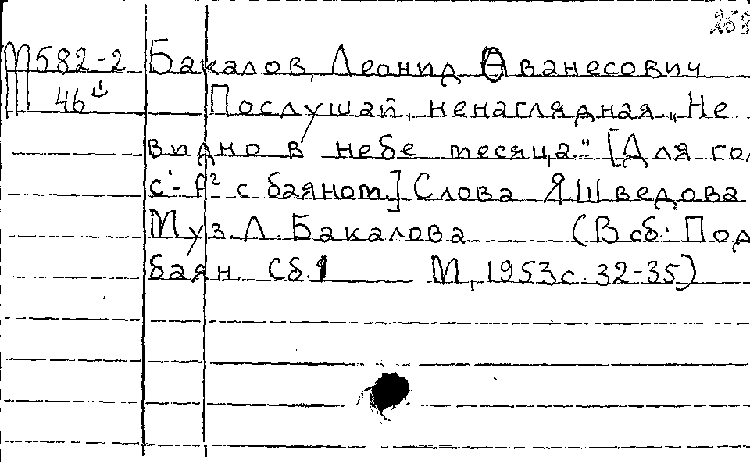 М582-2 Бакалов, Леонид Ованесович
46 Послушай, ненаглядная „Не
видно в небе месяца." [Для гол
с¹-f² с баяном.] Слова Я Шведова
Муз. Л. Бакалова (В сб: Под
баян. Сб. 1 М, 1953 с. 32-35)